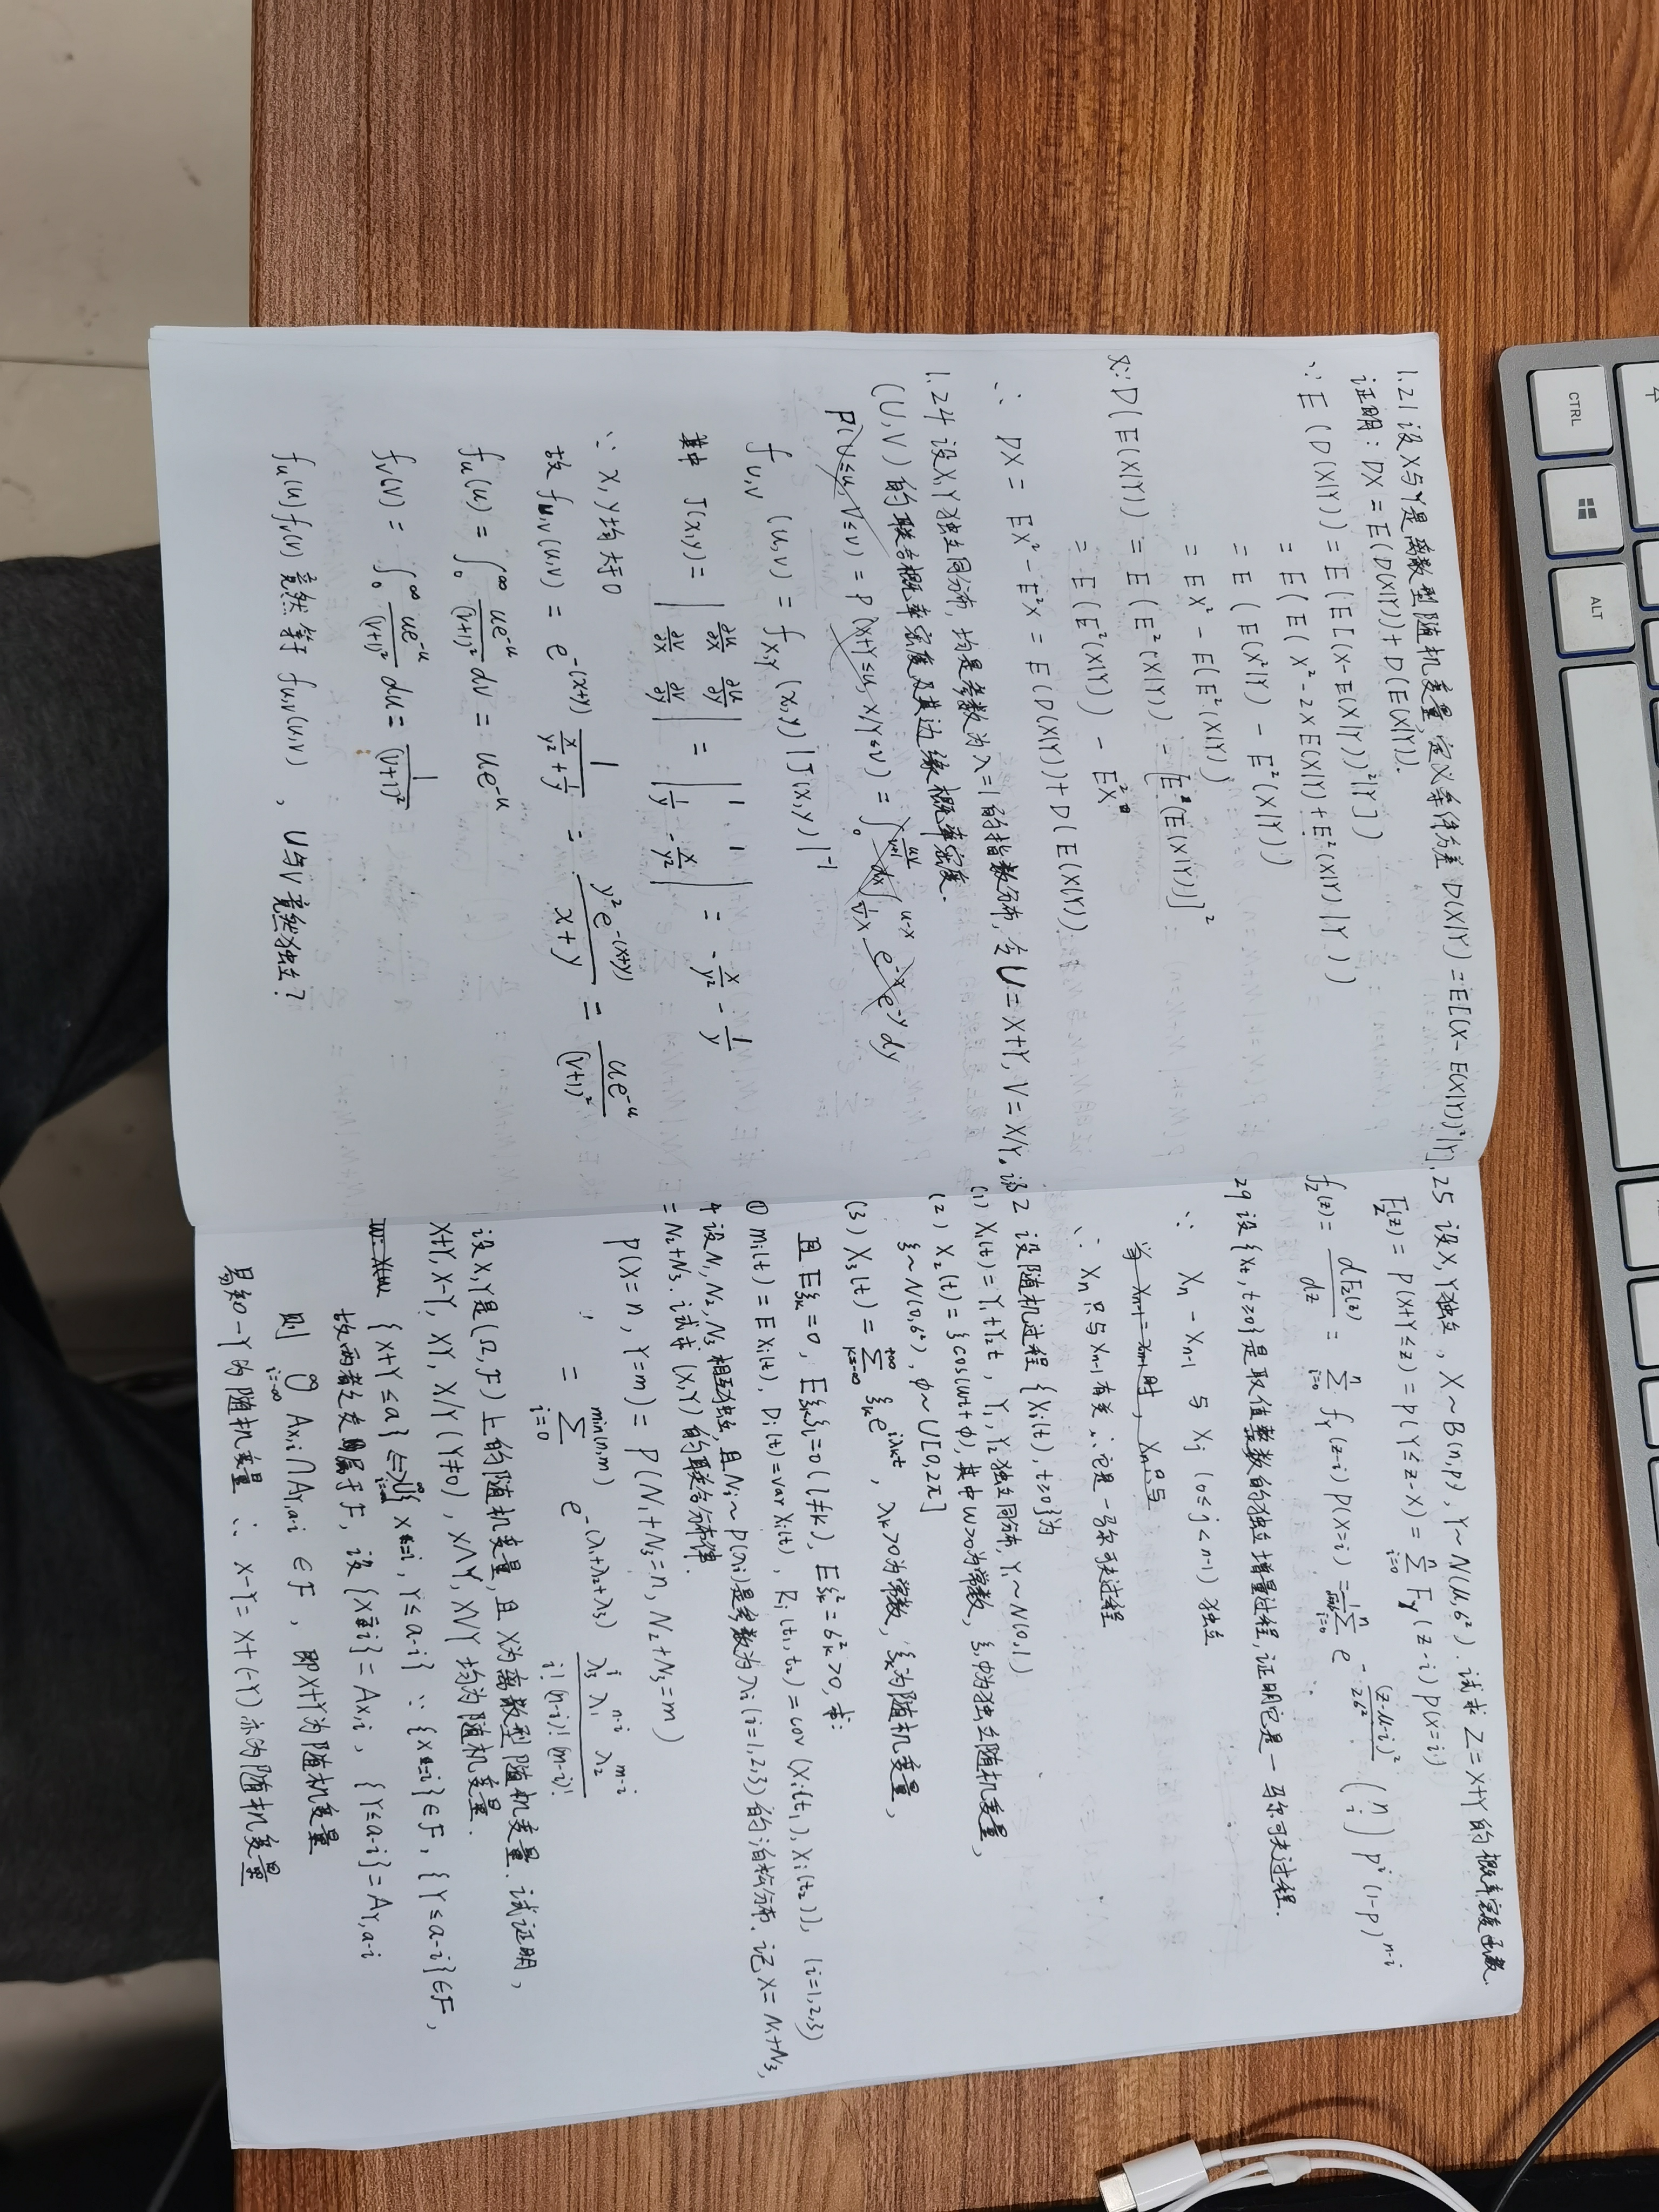 1.21 设X与Y是离散型随机变量,定义条件方差 D(X|Y)=E[(X-E(X|Y))²|Y],
证明: DX=E(D(X|Y))+D(E(X|Y)).
∵ E(D(X|Y)) = E(E[(X-E(X|Y))²|Y])
= E(E(X²-2XE(X|Y)+E²(X|Y)|Y))
= E(E(X²|Y) - E²(X|Y))
= EX² - E(E²(X|Y))
又∵ D(E(X|Y)) = E(E²(X|Y)) - [E(E(X|Y))]²
= E(E²(X|Y)) - E²X
∴ DX = EX² - E²X = E(D(X|Y)) + D(E(X|Y))
1.24 设X,Y独立同分布,均是参数为λ=1的指数分布,令U=X+Y, V=X/Y, 求
(U,V)的联合概率密度及其边缘概率密度.
P(U≤u, V≤v) = P(X+Y≤u, X/Y≤v) = ∫₀^{uv/(v+1)} dx ∫_{x/v}^{u-x} e^{-x}e^{-y}dy
f_{U,V}(u,v) = f_{X,Y}(x,y)|J(x,y)|^{-1}
其中 J(x,y) = |∂u/∂x ∂u/∂y; ∂v/∂x ∂v/∂y| = |1 1; 1/y -x/y²| = -x/y² - 1/y
∵ x,y均大于0
故 f_{U,V}(u,v) = e^{-(x+y)} 1/(x/y²+1/y) = y²e^{-(x+y)}/(x+y) = ue^{-u}/(v+1)²
f_U(u) = ∫₀^∞ ue^{-u}/(v+1)² dv = ue^{-u}
f_V(v) = ∫₀^∞ ue^{-u}/(v+1)² du = 1/(v+1)²
f_U(u)f_V(v)竟然等于f_{U,V}(u,v), U与V竟然独立?
25 设X,Y独立, X~B(n,p), Y~N(μ,σ²). 试求Z=X+Y的概率密度函数.
F_Z(z) = P(X+Y≤z) = P(Y≤z-X) = Σ_{i=0}^n F_Y(z-i)P(X=i)
f_Z(z) = dF_Z(z)/dz = Σ_{i=0}^n f_Y(z-i)P(X=i) = 1/(√2πσ) Σ_{i=0}^n e^{-(z-μ-i)²/2σ²} (n i) p^i(1-p)^{n-i}
29 设{X_t, t≥0}是取值整数的独立增量过程,证明它是一马尔可夫过程.
∵ X_n - X_{n-1} 与 X_j (0≤j<n-1) 独立
当 X_{n-1}=x_{n-1}时, X_n只与
∴ X_n只与X_{n-1}有关 ∴它是一马尔可夫过程
2 设随机过程{X_i(t), t≥0}为
(1) X₁(t)=Y₁+Y₂t, Y₁,Y₂独立同分布, Y₁~N(0,1)
(2) X₂(t)=ξcos(ωt+φ),其中ω>0为常数, ξ,φ为独立随机变量,
ξ~N(0,σ²), φ~U[0,2π]
(3) X₃(t)=Σ_{k=-∞}^{+∞} ξ_k e^{iλ_k t}, λ_k>0为常数, ξ_k为随机变量,
且Eξ_k=0, Eξ_kξ_l=0(l≠k), Eξ_k²=σ_k²>0,求:
① m_i(t)=EX_i(t), D_i(t)=var X_i(t), R_i(t₁,t₂)=cov(X_i(t₁),X_i(t₂)), (i=1,2,3)
4 设N₁,N₂,N₃相互独立,且N_i~P(λ_i)是参数为λ_i(i=1,2,3)的泊松分布. 记X=N₁+N₃, Y
=N₂+N₃. 试求(X,Y)的联合分布律.
P(X=n,Y=m) = P(N₁+N₃=n, N₂+N₃=m)
= Σ_{i=0}^{min(n,m)} e^{-(λ₁+λ₂+λ₃)} λ₃^i λ₁^{n-i} λ₂^{m-i}/(i!(n-i)!(m-i)!)
设X,Y是(Ω,F)上的随机变量,且X为离散型随机变量.试证明,
X+Y, X-Y, XY, X/Y(Y≠0), X∧Y, X∨Y均为随机变量.
{X+Y≤a} ⇔ ∪{X=i, Y≤a-i} ∵ {X=i}∈F, {Y≤a-i}∈F,
故两者之交属于F, 设{X=i}=A_{X,i}, {Y≤a-i}=A_{Y,a-i}
则 ∪_{i=-∞}^∞ A_{X,i}∩A_{Y,a-i} ∈F, 即X+Y为随机变量
易知-Y为随机变量 ∴ X-Y=X+(-Y)亦为随机变量
CTRL
ALT